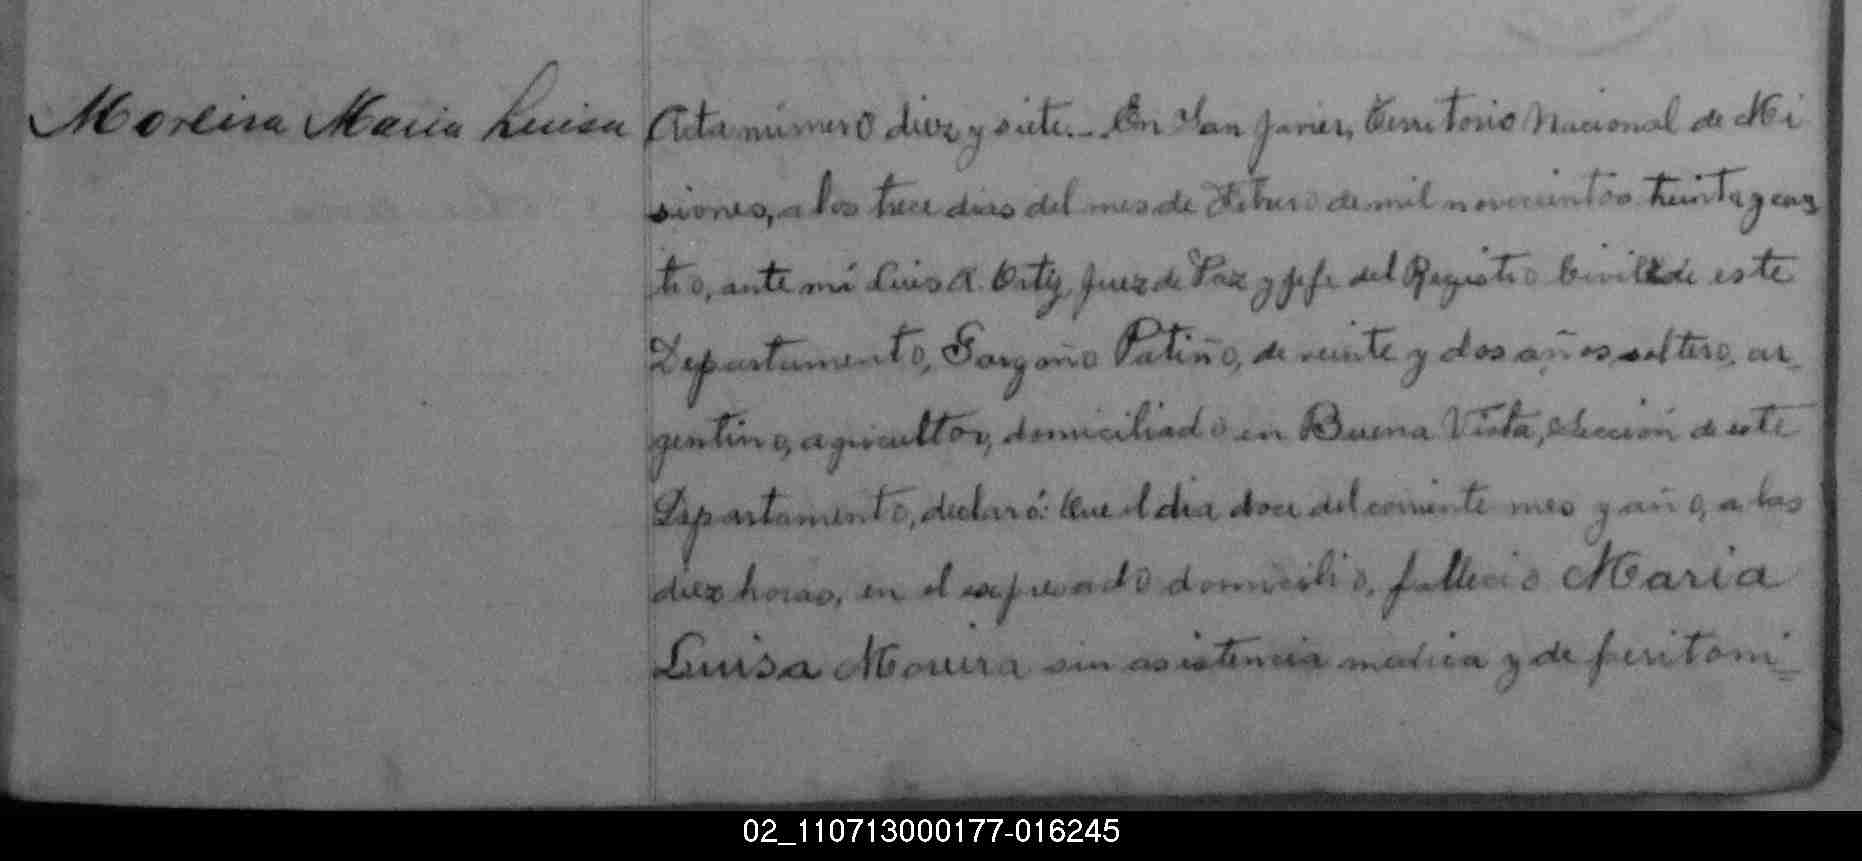 Moreira Maria Luisa
Acta número diez y siete.- En San Javier, Territorio Nacional de Mi
siones, a los trece dias del mes de Febrero de mil novecientos treinta y cua
tro, ante mí Luis A. Ortiz, Juez de Paz y Jefe del Registro Civil de este
Departamento, Patiño, de veinte y dos años, soltero, ar_
gentino, agricultor, domiciliado en Buena Vista, sección de este
Departamento, declaró: Que el dia doce del corriente mes y año, a las
diez horas, en el expresado domicilio, fallecio Maria
Luisa Moreira sin asistencia medica y de peritoni=
02_110713000177-016245